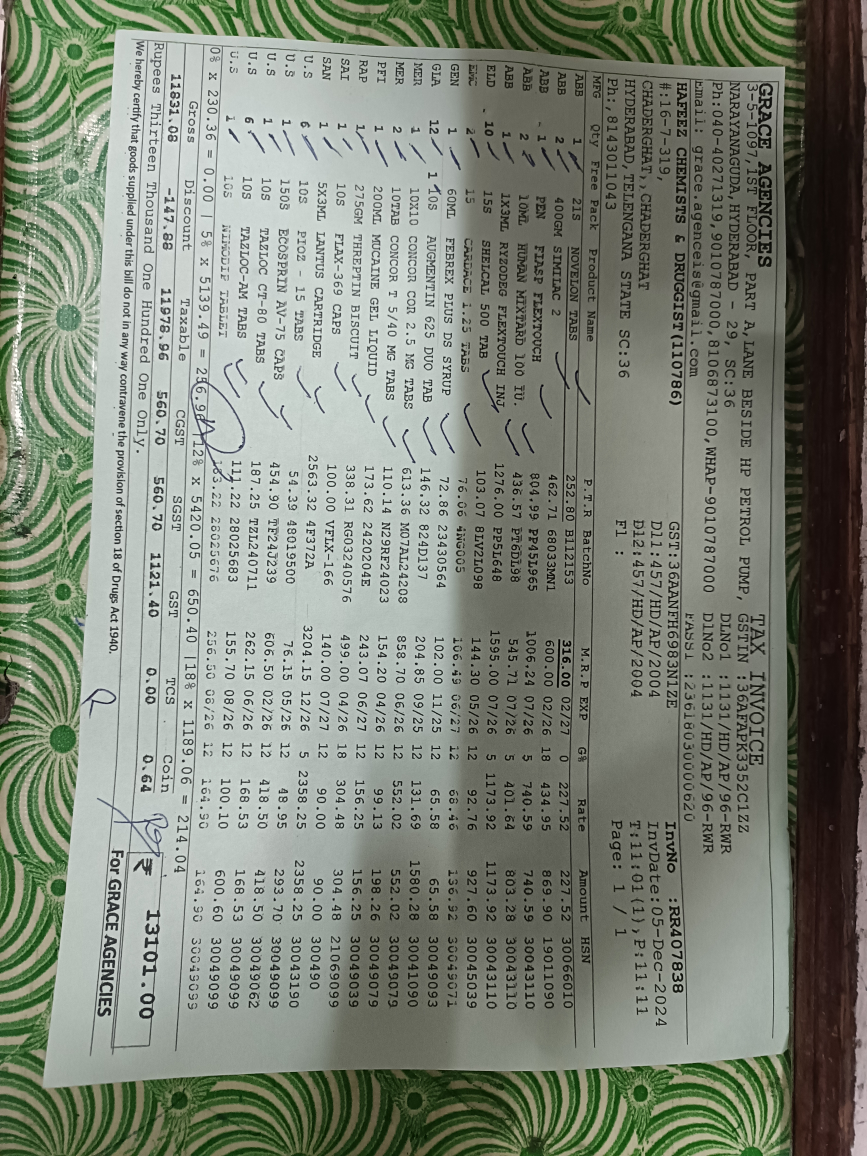 GRACE AGENCIES
3-5-1097,1ST FLOOR, PART A,LANE BESIDE HP PETROL PUMP,
NARAYANAGUDA,HYDERABAD - 29, SC:36
Ph:040-40271319,9010787000,8106873100,WHAP-9010787000
Email: grace.agenceis@gmail.com
TAX INVOICE
GSTIN :36AFAPK3352C1ZZ
DLNo1 :1131/HD/AP/96-RWR
DLNo2 :1131/HD/AP/96-RWR
FASSI :23618030000620
HAFEEZ CHEMISTS & DRUGGIST(110786)
#:16-7-319,
CHADERGHAT,, CHADERGHAT
HYDERABAD,TELENGANA STATE SC:36
Ph:,8143011043
GST:36AANFH6983N1ZE
D11:457/HD/AP/2004
D12:457/HD/AP/2004
F1 :
InvNo :RR407838
InvDate:05-Dec-2024
T:11:01(1),P:11:11
Page: 1 / 1
MFG Qty Free Pack Product Name P.T.R BatchNo M.R.P EXP G% Rate Amount HSN
ABB 1 21S NOVELON TABS 252.80 B112153 316.00 02/27 0 227.52 227.52 30066010
ABB 2 400GM SIMILAC 2 462.71 68033MN1 600.00 02/26 18 434.95 869.90 19011090
ABB 1 PEN FIASP FLEXTOUCH 804.99 PP45L965 1006.24 07/26 5 740.59 740.59 30043110
ABB 2 10ML HUMAN MIXTARD 100 IU. 436.57 PT6DL98 545.71 07/26 5 401.64 803.28 30043110
ABB 1 1X3ML RYZODEG FLEXTOUCH INJ 1276.00 PP5L648 1595.00 07/26 5 1173.92 1173.92 30043110
ELD 10 15S SHELCAL 500 TAB 103.07 8LV2L098 144.30 05/26 12 92.76 927.60 30045039
2 15 CARDACE 1.25 TABS 76.06 4NG005 106.49 06/27 12 68.46 136.92 30049071
GEN 1 60ML FEBREX PLUS DS SYRUP 72.86 23430564 102.00 11/25 12 65.58 65.58 30049093
GLA 12 1 10S AUGMENTIN 625 DUO TAB 146.32 824D137 204.85 09/25 12 131.69 1580.28 30041090
MER 1 10X10 CONCOR COR 2.5 MG TABS 613.36 M07AL24208 858.70 06/26 12 552.02 552.02 30049079
MER 2 10TAB CONCOR T 5/40 MG TABS 110.14 N29RF24023 154.20 04/26 12 99.13 198.26 30049079
PFI 1 200ML MUCAINE GEL LIQUID 173.62 2420204E 243.07 06/27 12 156.25 156.25 30049039
RAP 1 275GM THREPTIN BISCUIT 338.31 RG03240576 499.00 04/26 18 304.48 304.48 21069099
SAI 1 10S FLAX-369 CAPS 100.00 VFLX-166 140.00 07/27 12 90.00 90.00 300490
SAN 1 5X3ML LANTUS CARTRIDGE 2563.32 4F372A 3204.15 12/26 5 2358.25 2358.25 30043190
U.S 6 10S PIOZ - 15 TABS 54.39 48019500 76.15 05/26 12 48.95 293.70 30049099
U.S 1 150S ECOSPRIN AV-75 CAPS 454.90 TF247239 606.50 02/26 12 418.50 418.50 30049062
U.S 1 10S TAZLOC CT-80 TABS 187.25 TZL240711 262.15 06/26 12 168.53 168.53 30049099
U.S 6 10S TAZLOC-AM TABS 111.22 28025683 155.70 08/26 12 100.10 600.60 30049099
U.S 1 10S NIMODIP TABLET 183.22 28025676 256.50 08/26 12 164.90 164.90 30049099
0% x 230.36 = 0.00 | 5% x 5139.49 = 256.96 | 12% x 5420.05 = 650.40 |18% x 1189.06 = 214.04
Gross Discount Taxable CGST SGST GST TCS Coin
11831.08 -147.88 11978.96 560.70 560.70 1121.40 0.00 0.64 ₹ 13101.00
Rupees Thirteen Thousand One Hundred One Only.
We hereby certify that goods supplied under this bill do not in any way contravene the provision of section 18 of Drugs Act 1940.
For GRACE AGENCIES